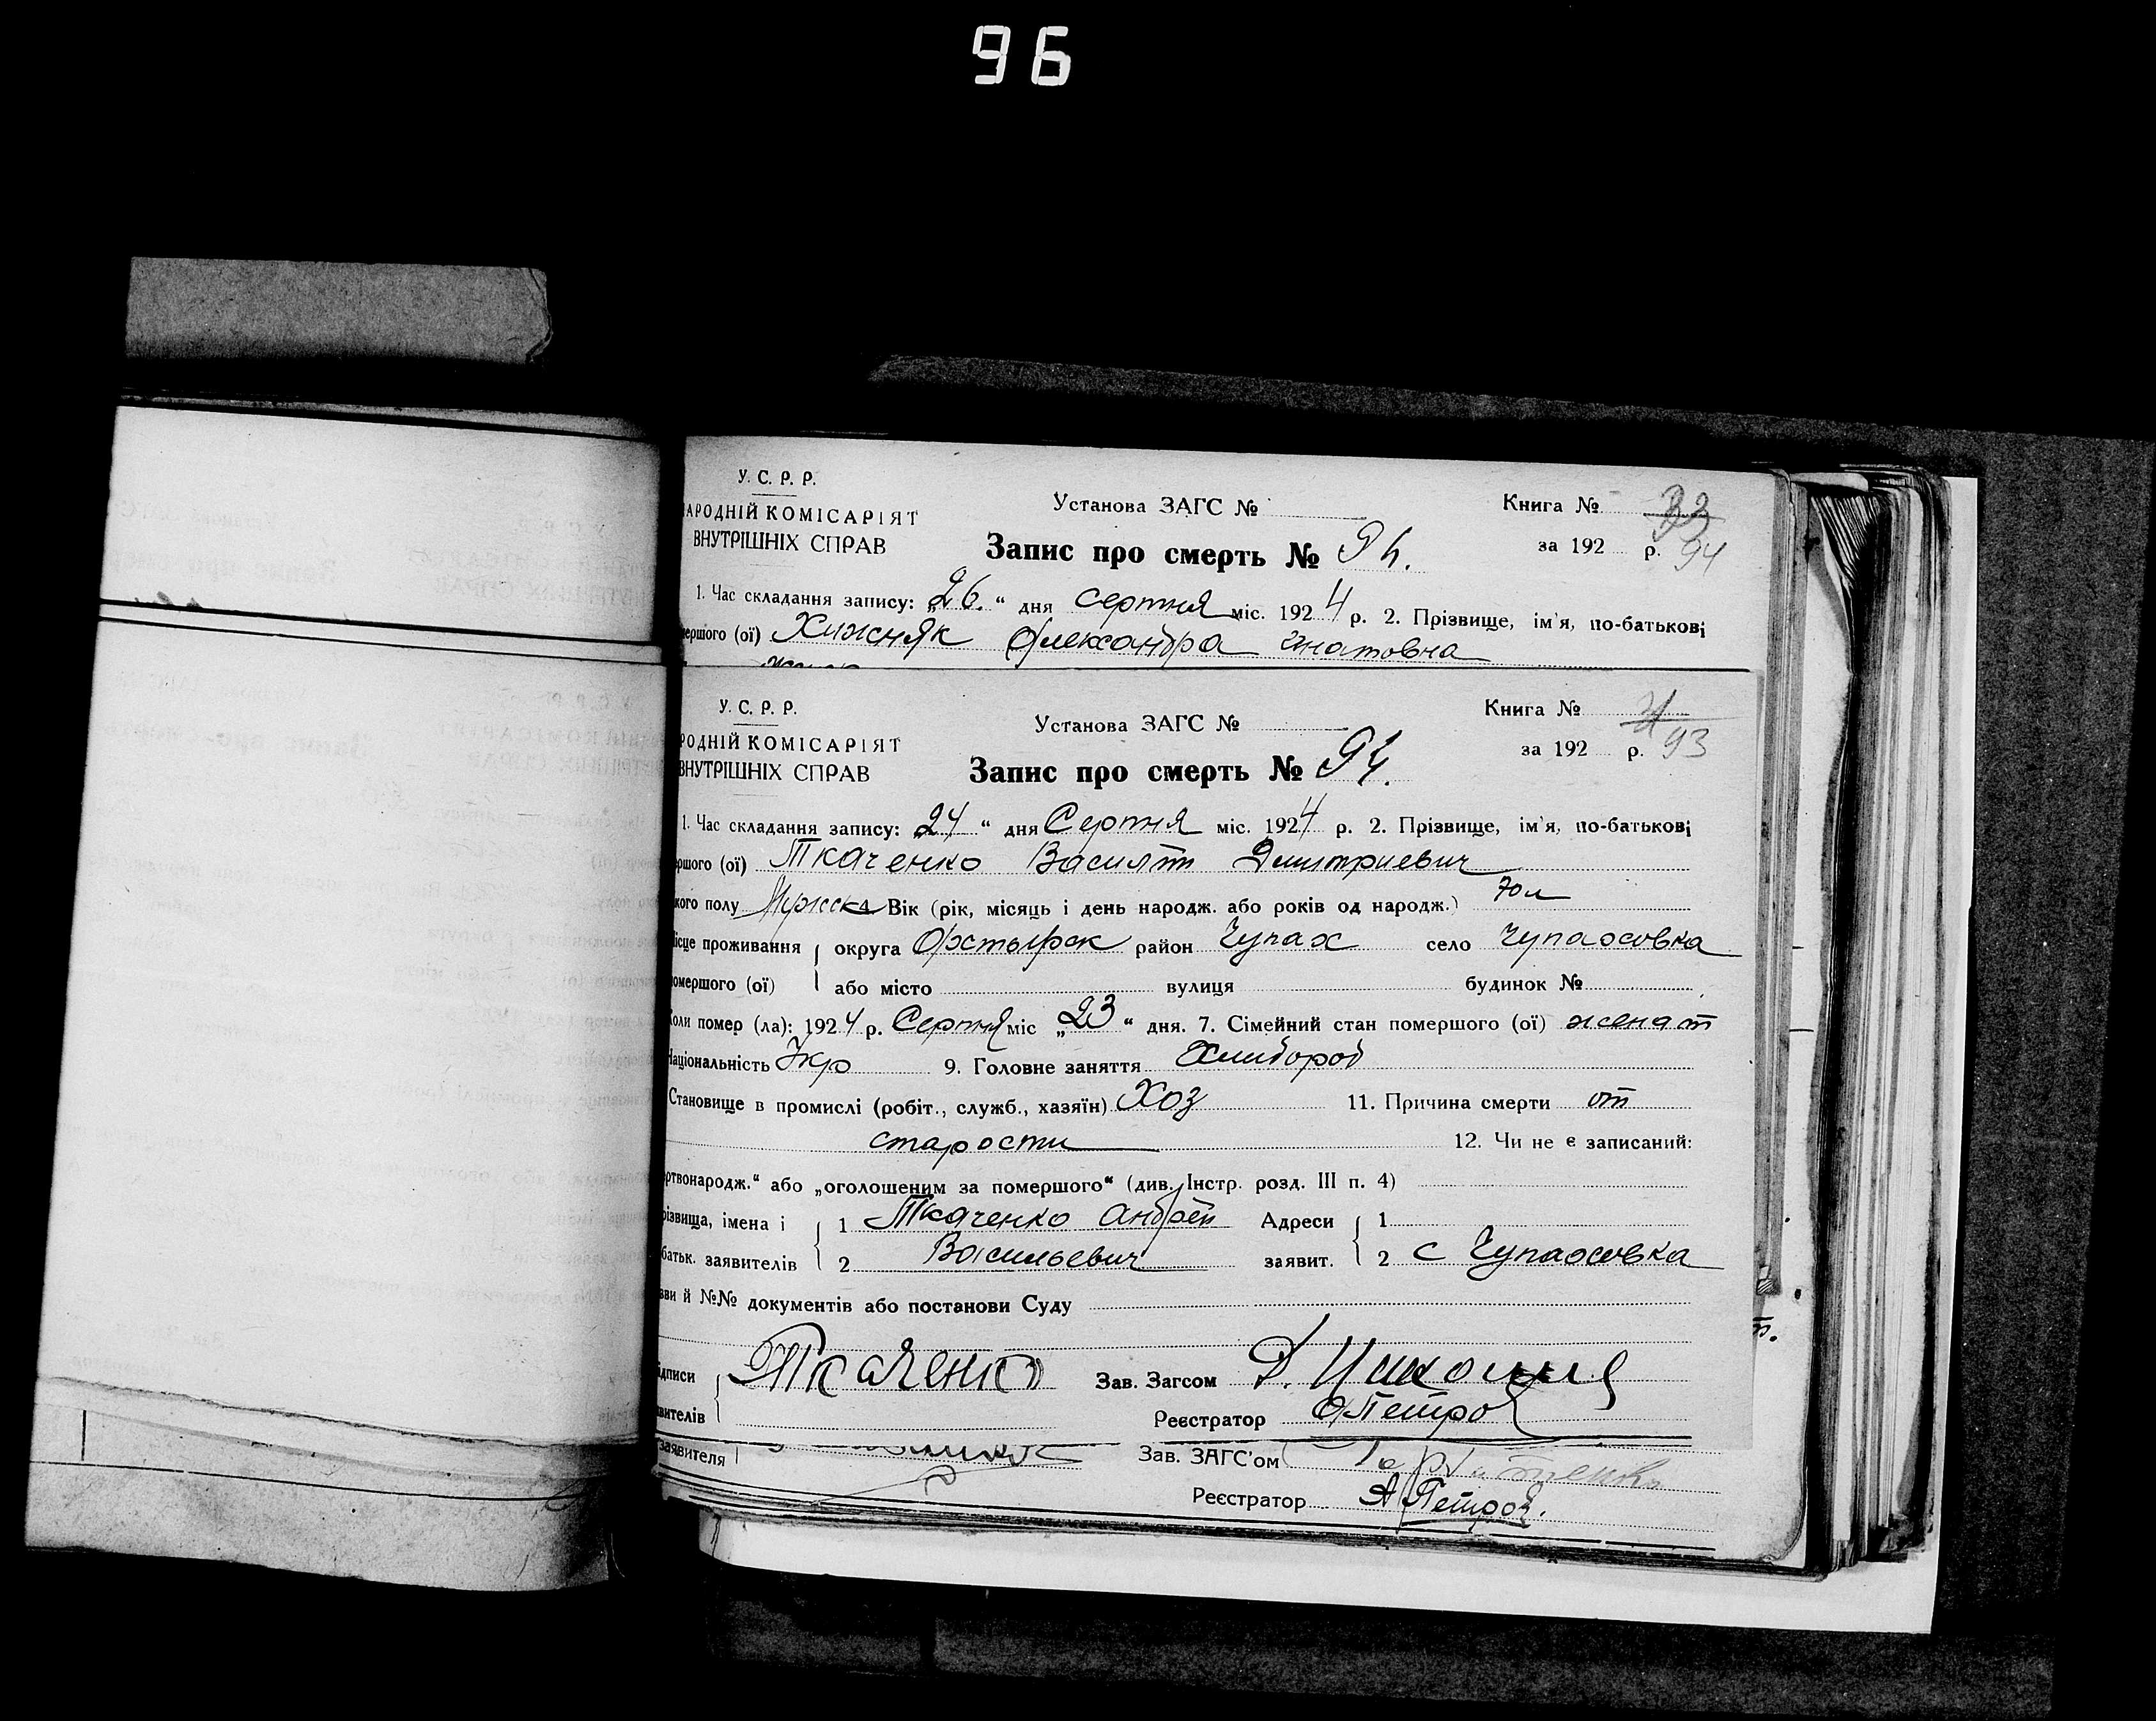 96
У. С. Р. Р.
АРОДНІЙ КОМІСАРІЯТ
ВНУТРІШНІХ СПРАВ
Установа ЗАГС №
Книга №
Запис про смерть №
за 192 р. 94
1. Час складання запису: „26.“ дня Серпня міс. 1924 р. 2. Прізвище, ім'я, по-батькові
мершого (ої) Хижняк Олександра Гнатовна
У. С. Р. Р.
РОДНІЙ КОМІСАРІЯТ
ВНУТРІШНІХ СПРАВ
Установа ЗАГС №
Книга №
Запис про смерть №
за 192 р. 93
1. Час складання запису: „24“ дня Серпня міс. 1924 р. 2. Прізвище, ім'я, по-батькові
ршого (ої) Ткаченко Василий Дмитриевич
кого полу Мужска Вік (рік, місяць і день народж. або років од народж.) 70 л
ісце проживання округа район Чупах село Чупаховка
омершого (ої) або місто вулиця будинок №
оли помер (ла): 1924 р. Серпня міс „23“ дня. 7. Сімейний стан помершого (ої) женат
Національність Укр 9. Головне заняття Хлибороб
Становище в промислі (робіт., служб., хазяїн) Хоз 11. Причина смерти от
старости 12. Чи не є записаний:
ртвонародж.“ або „оголошеним за помершого“ (див. Інстр. розд. III п. 4)
різвища, імена і 1 Ткаченко Андрей Адреси 1
батьк. заявителів 2 Васильевич заявит. 2 с Чупаховка
зви й №№ документів або постанови Суду
ідписи Ткаченко Зав. Загсом
вителів Реєстратор Петров
заявителя Зав. ЗАГС'ом
Реєстратор А Петров.